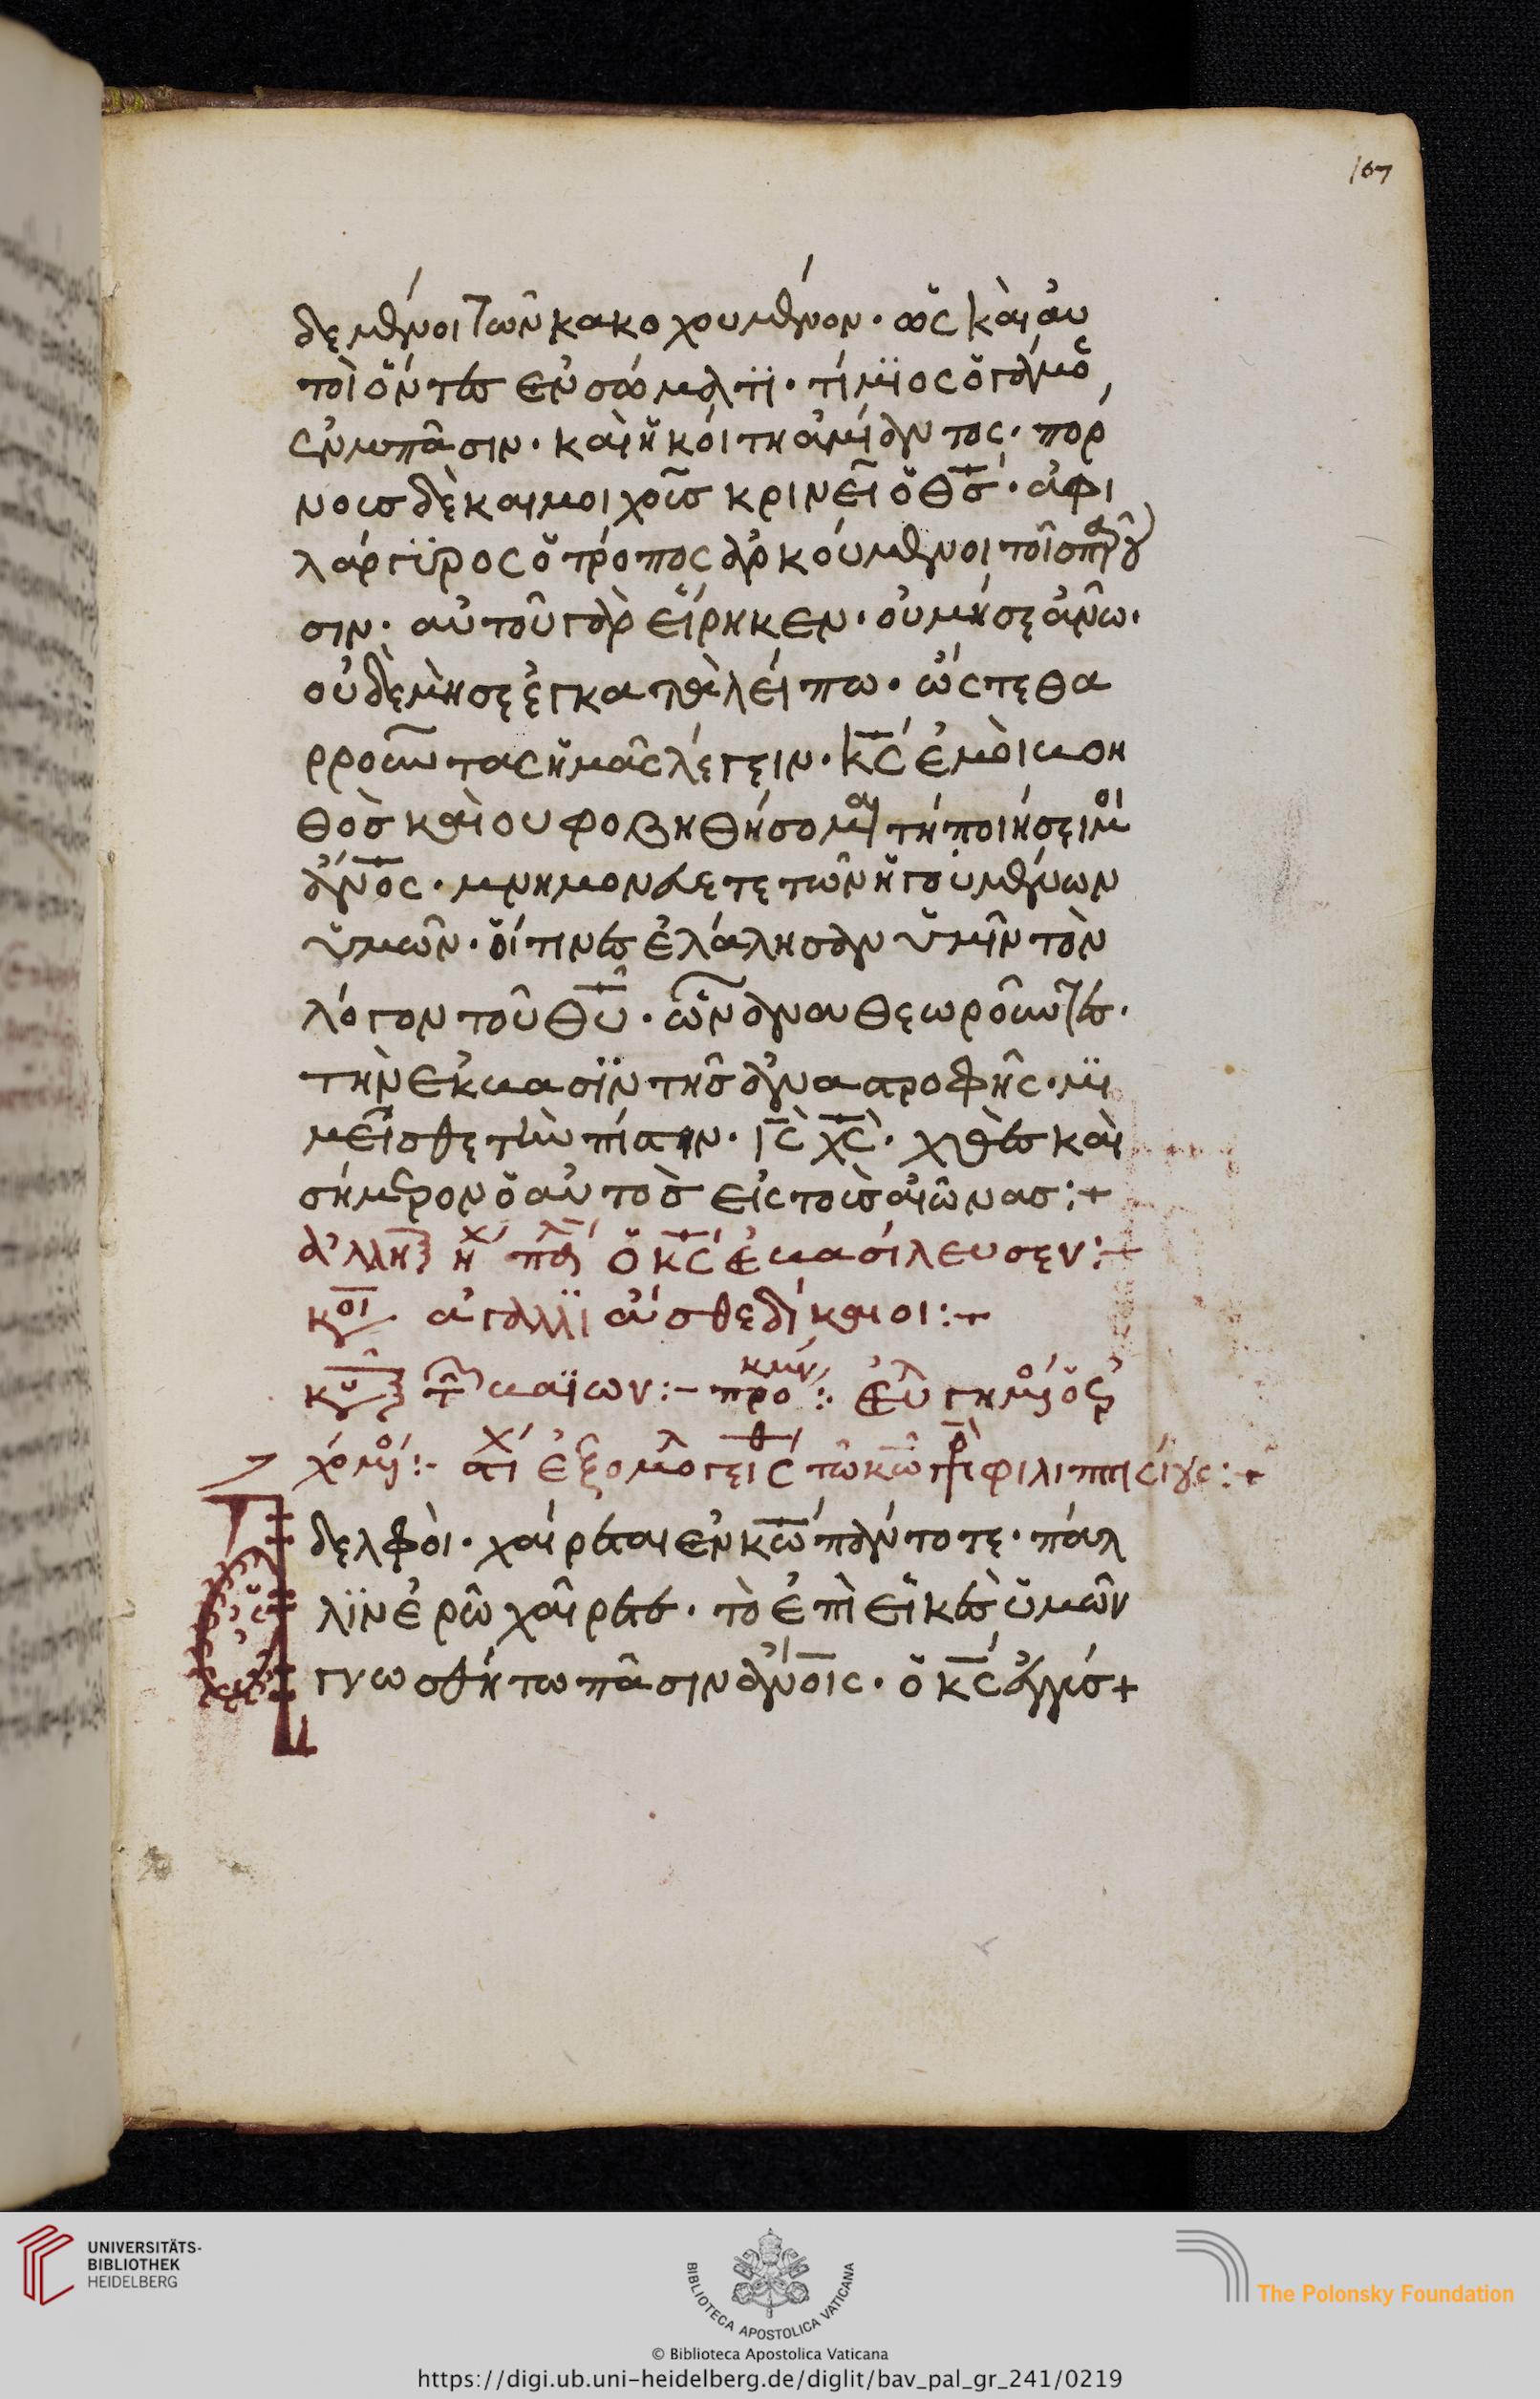 167
δεμένοι τῶν κακοχουμένον· ὡς καὶ αὐ
τοὶ ὄντες ἐν σώματϊ· τίμϊος ὁ γάμος
ἐν πᾶσιν· καὶ ἡ κόιτη ἀμίαντος· πόρ
νοις δὲ καὶ μοιχοῖς κρινεῖ ὁ θς· ἀφι
λάργϋρος ὁ τρόπος ἀρκούμενοι τοῖς παροῦ
σιν· αὐτοῦ γὰρ εἴρηκεν· οὐ μή σε ἀνῶ·
οὐδὲ μὴ σε ἐγκαταλείπω· ὥς τε θα
ρροῦντας ἡμᾶς λέγειν· κς ἐμοὶ βοη
θὸς καὶ ου φοβηθήσομαι τή ποιήσει μοι
ἀνος· μνημονεύετε τῶν ἡγουμένων
ὑμῶν· οἵτινες ἐλάλησαν ὑμῖν τὸν
λόγον τοῦ θυ· ὧν ἀναθεωροῦντες·
τὴν ἐκβασϊν τῆς ἀναστροφῆς· μϊ
μεῖσθε τὴν πίστιν· ις χς· χθὲς καὶ
σήμερον ὁ αὐτὸς εἰς τοὺς αἰῶνας:+
ὁ κς ἐβασίλευσεν:+
κοι ἀγαλλϊᾶσθε δίκαιοι:+
κυ τῶν βαϊων:- προκμν: Εὐλογημος ὁ ἐρ
χόμος:- στι ἐξομολογεις τῶ κω πρ φιλιππισίους:+
Ἀδελφὸι· χαίρεται ἐν κω πάντοτε· πάλ
λϊν ἐρῶ χαίρετε· τὸ ἐπὶ εἰκὲς ὑμῶν
γνωσθήτω πᾶσιν ἀνοις· ὁ κς ἐγγύς+
UNIVERSITÄTS-
BIBLIOTHEK
HEIDELBERG
BIBLIOTECA APOSTOLICA VATICANA
The Polonsky Foundation
© Biblioteca Apostolica Vaticana
https://digi.ub.uni-heidelberg.de/diglit/bav_pal_gr_241/0219